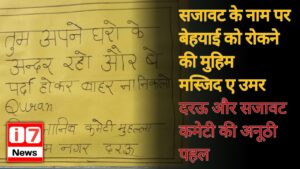 तुम अपने घरो के
अन्दर रहो और बे
पर्दा होकर बाहर ना निकलो
Quran
कमेटी मुहल्ला
नगर दरऊ
i7
News
सजावट के नाम पर
बेहयाई को रोकने
की मुहिम
मस्जिद ए उमर
दरऊ और सजावट
कमेटी की अनूठी
पहल